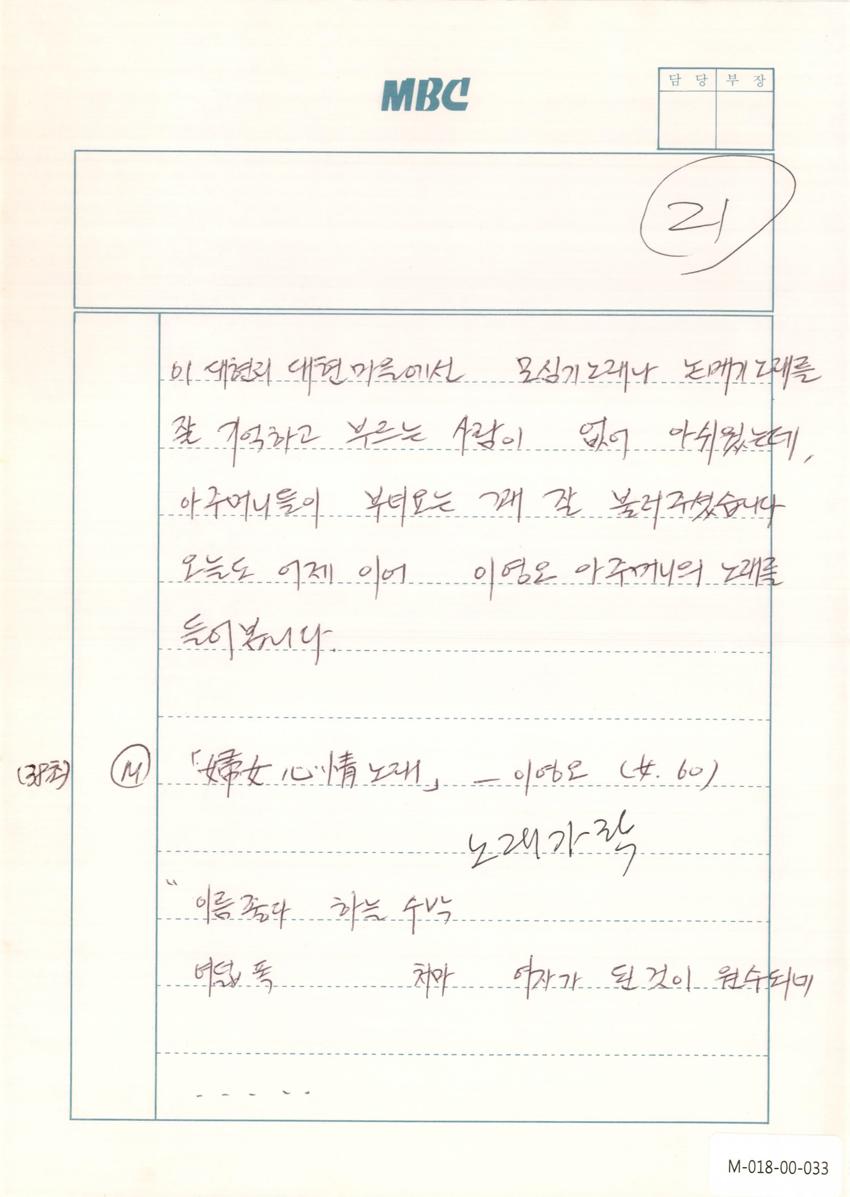 MBC
담당 부장
21
이 대현리 대현마을에선 모심기노래나 논매기노래를
잘 기억하고 부르는 사람이 없어 아쉬웠는데,
아주머니들이 부녀요는 꽤 잘 불러주셨습니다
오늘도 어제 이어 이영오 아주머니의 노래를
들어봅니다.
(38초) Ⓜ 「婦女心情노래」 — 이영오 (女. 60)
노래가락
“ 이름좋다 하늘 수박
여덟폭 치마 여자가 된것이 원수되미
. . . . .
M-018-00-033